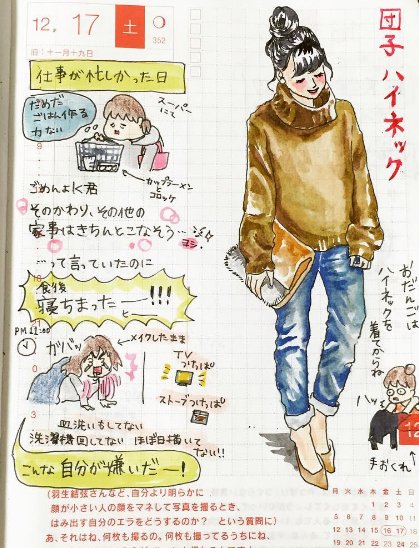 12. 17 土
352
旧:十一月十九日
仕事が忙しかった日
だめだ
ごはん作る
力ない
スーパー
にて
カップラーメン
と
コロッケ
ごめんよK君
そのかわり、その他の
家事はきちんとこなそう…
ヨシ
…って言っていたのに
食後
寝ちまったー!!!
PM 12:00
ガバッ
メイクした出ま
TV
つけっぱ
ストーブつけっぱ
皿洗いもしてない
洗濯機回してない ほぼ日描いて
ない!!
こんな自分が嫌いだー!
(羽生結弦さんなど、自分より明らかに
顔が小さい人の顔をマネして写真を撮るとき、
はみ出す自分のエラをどうするのか? という質問に)
あ、それはね、何枚も撮るの。何枚も撮ってるうちにね、
団子ハイネック
おだんごは
ハイネックを
着てからね
ハッ
12
手おくれ
月 火 水 木 金 土 日
1 2 3 4
5 6 7 8 9 10 11
12 13 14 15 16 17 18
19 20 21 22 23 24 25